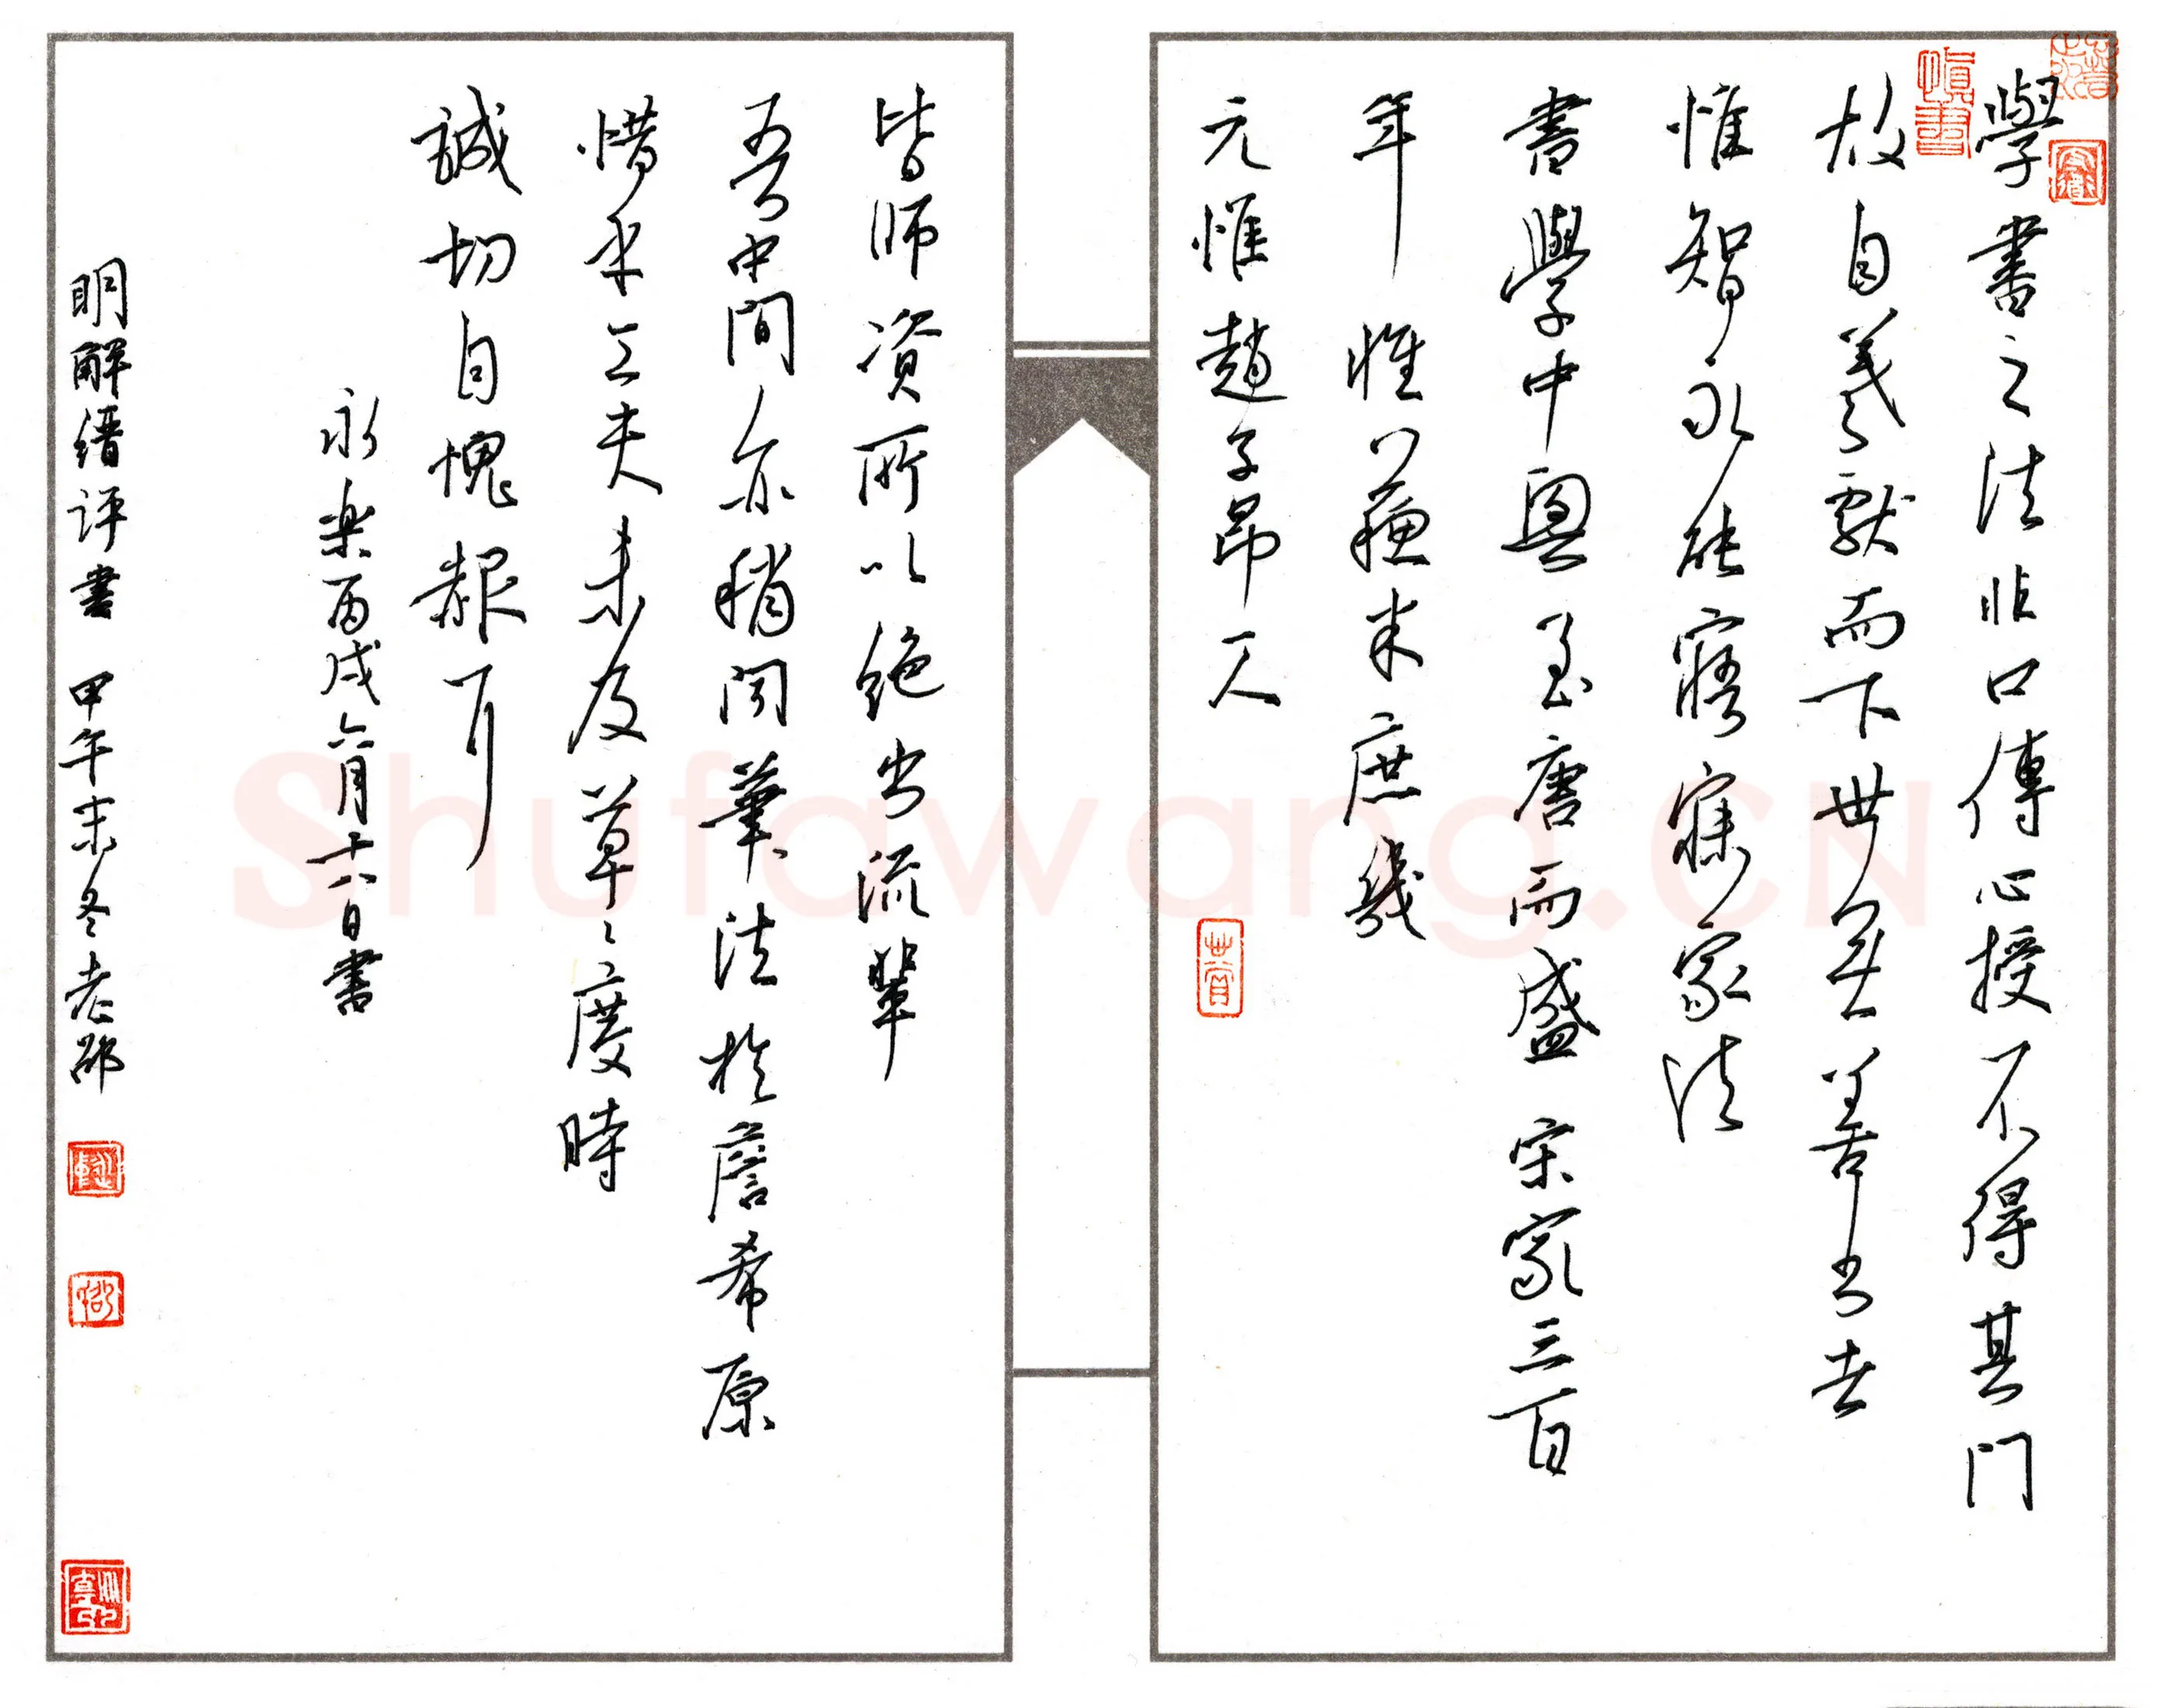 學書之法非口傳心授不得其門
故自羲獻而下世無善書者
惟智永能寤寐家法
書學中興至唐而盛宋家三百
年惟蘇米庶幾
元惟趙子昂一人
皆師資所以絕出流輩
吾中間亦稍聞筆法於詹希原
惜乎工夫未及草々度時
誠切自愧赧耳
永樂丙戌六月十八日書
明解縉評書 甲午末冬老邵
Shufawang.CN